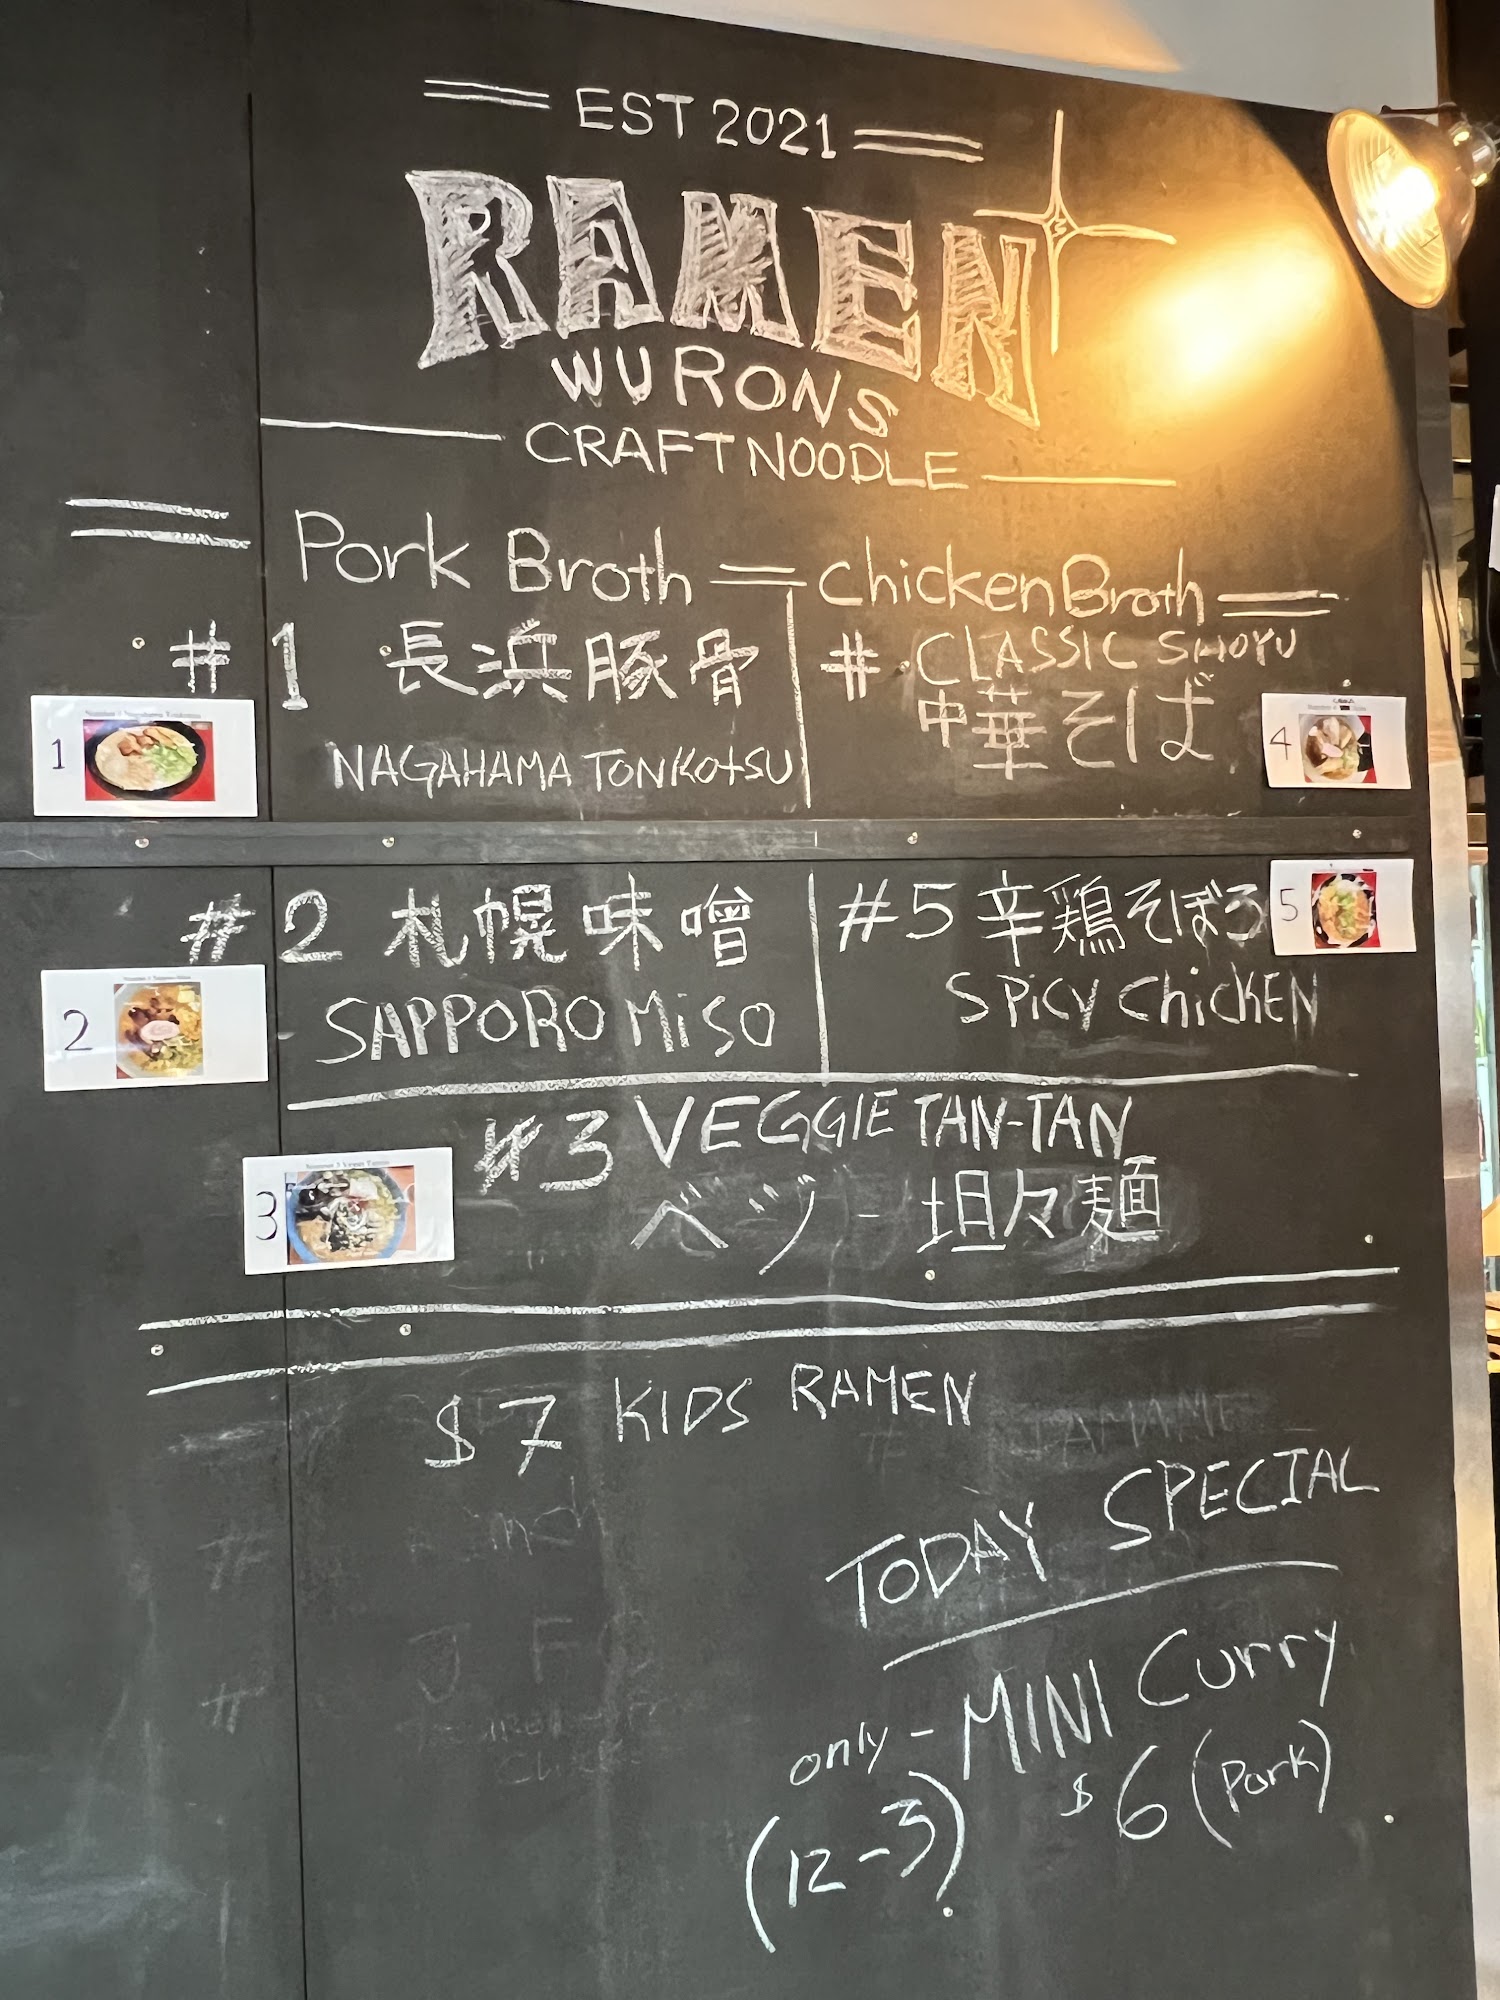 EST 2021
RAMEN
WURONS
CRAFT NOODLE
Pork Broth
#1 長浜豚骨
NAGAHAMA TONKOTSU
1
#2 札幌味噌
SAPPORO MiSO
2
Chicken Broth
# CLASSIC SHOYU
中華そば
4
#5 辛鶏そぼろ
SPiCY ChiCKEN
5
#3 VEGGIE TAN-TAN
ベジ-坦々麺
3
$7 KIDS RAMEN
TODAY SPECIAL
only - MINI Curry
(12-3) $6 (Pork)